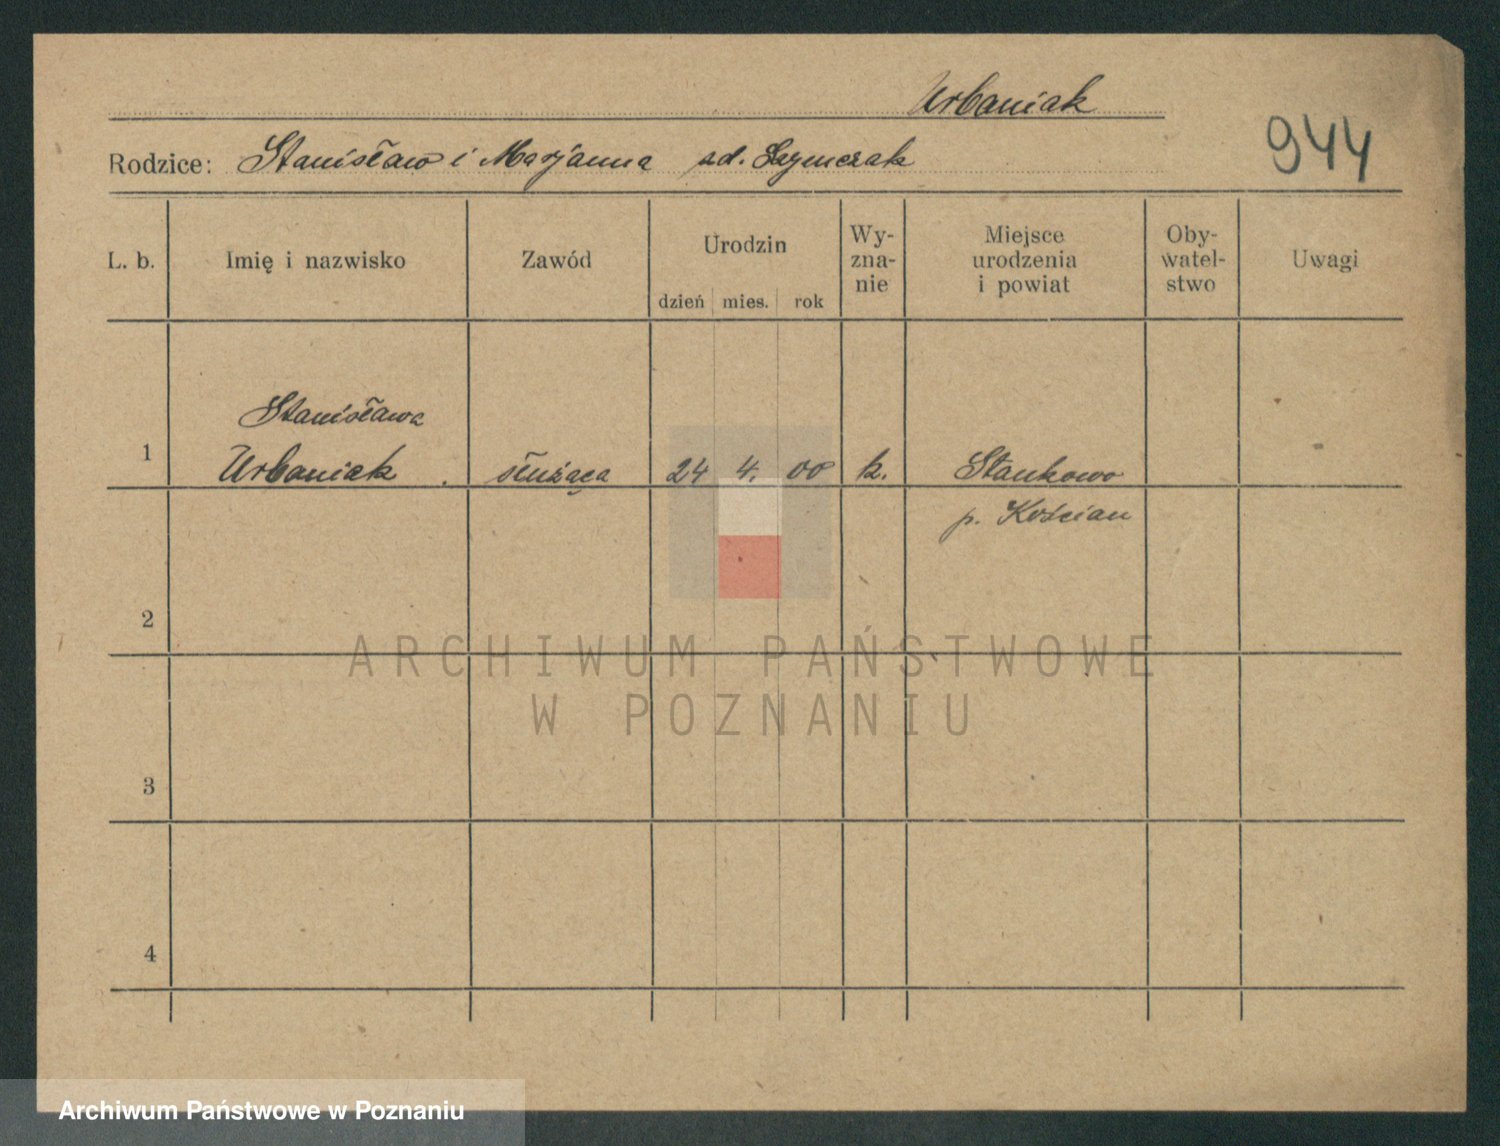 Urbaniak
944
Rodzice: Stanisław i Marjanna zd. Szymczak
L. b. Imię i nazwisko Zawód Urodzin dzień mies. rok Wy-zna-nie Miejsce urodzenia i powiat Oby-watel-stwo Uwagi
Stanisława
1 Urbaniak służąca 24 4. 00 k. Stankowo
p. Kościan
2
ARCHIWUM PAŃSTWOWE
W POZNANIU
3
4
Archiwum Państwowe w Poznaniu